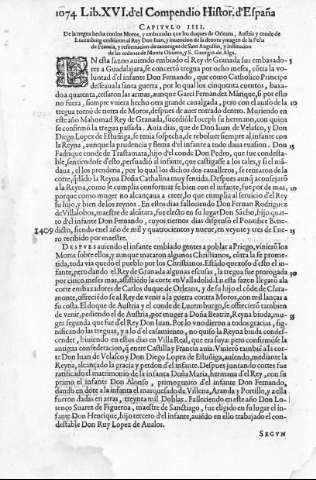 1074 Lib. XVI. del Compendio Histor. d'España
CAPITVLO IIII.
De la tregua hecha con los Moros, y embaxadas que los duques de Austria, y conde de
Lucemburg embiaron al Rey Don Juan, y inuencion de la deuota ymagen de la Peña
de Francia, y reformacion de conuentos de Sant Augustin, y institucion
de las ordenes de Monte Oliueto, y S. Georgio de Alga.
EN esta sazon auiendo embiado el Rey de Granada sus embaxadores
a Guadalajara, se concertó tregua por ocho meses, con la voluntad
d'el infante Don Fernando, que como Catholico Principe
desseaua santa guerra, por lo qual los cincuenta cuentos,
quarenta, cessaron las armas, aunque Garci Fernandez Manrique, si por esto
no fuera, siempre vuiera hecho otra grande caualgada, pero con el auiso de la
tregua torno de Moros, despues de auer entrado dentro. Muriendo en
este año Mahomad Rey de Granada, sucediole Juceph su hermano, con quien
se confirmó la tregua passada. Auia dias, que de Don Juan de Velasco, y Don
Diego Lopez de Estuñiga, se tenia sospecha, de reboluer siempre al infante con
la Reyna, aunque la prudencia y flema d'el infante a todo daua
Fadrique conde de Trastamara, hijo d'el conde Don Pedro, que fue condestable,
sentiendose d'esto, persuadió al infante, que castigasse a los tales, y si el mandaua,
el los prenderia, por lo qual los dichos dos caualleros, se retraxeron de la
corte, la Reyna Doña Catherina muy sentida. Despues
a la Reyna, como le cumplia conformarse bien con el infante, fue por de mas,
porque como muger no alcançaua a creer, lo que cumplia al seruicio d'el Rey
su hijo, y bien de los reynos. En estos dias falleciendo Don Fernan Rodriguez
de Villalobos, maestre de alcantara, fue electo en su lugar Don Sancho, hijo
d'el infante Don Fernando, cuyos tiernos dias el Pontifice
1409 dicto, siendo en el año de mil y quatrocientos y nueue, en veynte y tres de Enero
recebido por maestre.
DESPVES auiendo el infante embiado gentes a poblar a Priego, vinieron los
Moros sobre ellos, y aunque mataron algunos Christianos, contra la fe prometida,
toda via quedó el pueblo por los Christianos. Estado quexoso d'esto el infante,
dando el Rey de Granada algunas escusas, la tregua fue prorogada
por cinco meses mas, assistiendo la corte en Valladolid. En esta sazon llegaron a la
corte embaxadores de Carlos duque de Orleans, y de su hijo el conde de Claramonte,
ofreciendose al Rey de venir a la guerra contra Moros, con mil lanças a
su costa. El duque de Austria y el conde de Lucemburg, se ofrecieron tambien
de venir, pediendo el de Austria, por muger a Doña Beatriz, Reyna biuda,
muger segunda que fue d'el Rey Don Juan. Por lo vno dieron a todos gracias,
significandoles las treguas, y a lo d'el casamiento, no quiso la Reyna biuda condescender,
biuiendo en estos dias en Villa Real, que era suya: pero confirmose la
antigua confederacion, entre Castilla y Francia auia. Vinieron tambien a la corte
Don Juan de Velasco y Don Diego Lopez de Estuñiga, auiendo, mediante la
Reyna, alcançado la gracia y perdon d'el infante. Despues juntando cortes fue
ratificado el matrimonio de la infanta Doña Maria, hermana d'el Rey, con su
primo el infante Don Alonso, primogenito d'el infante Don Fernando,
dando en dote a la infanta el marquesado de Villena, Aranda y Portillo, y a ella
fueron dadas en arras, treynta mil Doblas. Falleciendo en este año Don Lorenço
Suarez de Figueroa, maestre de Sanctiago, fue eligido en su lugar el infante
Don Henrique, hijo tercero d'el infante, auiendo en ello trabajado el condestable
Don Ruy Lopez de Aualos.
SEGVN